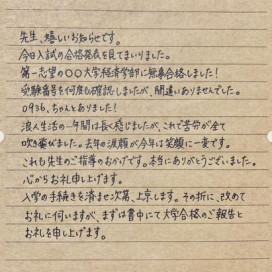 先生、嬉しいお知らせです。
今日入試の合格発表を見てまいりました。
第一志望の〇〇大学経済学部に無事合格しました！
受験番号を何度も確認しましたが、間違いありませんでした。
0936、ちゃんとありました！
浪人生活の一年間は長く感じましたが、これで苦労が全て
吹き飛びました。去年の涙顔が今年は笑顔に一変です。
これも先生のご指導のおかげです。本当にありがとうございました。
心からお礼申し上げます。
入学の手続きを済ませ次第、上京します。その折に、改めて
お礼に伺いますが、まずは書中にて大学合格のご報告と
お礼を申し上げます。